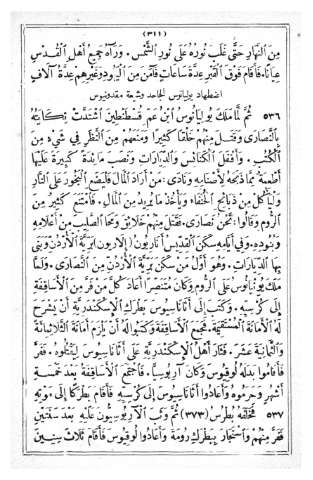 (٣١١)
مِنَ النَّهَارِ حَتَّى غَلَبَ نُورُهُ عَلَى نُورِ الشَّمْسِ. وَرَآهُ جَمِيعُ أَهْلِ الْقُدْسِ
عِيَانًا. فَأَقَامَ فَوْقَ الْقَبْرِ عِدَّةَ سَاعَاتٍ فَآمَنَ مِنَ الْيَهُودِ وَغَيْرِهِمْ عِدَّةُ آلَافٍ
اضطهاد يوليانوس الجاحد وشيعة مقدونيوس
٥٣٦ ثُمَّ لَمَّا مَلَكَ يُولِيَانُوسُ ابْنُ عَمِّ قُسْطَنْطِينَ اشْتَدَّتْ نِكَايَتُهُ
بِالنَّصَارَى وَقَتَلَ مِنْهُمْ خَلْقًا كَثِيرًا وَمَنَعَهُمْ مِنَ النَّظَرِ فِي شَيْءٍ مِنَ
الْكُتُبِ. وَأَقْفَلَ الْكَنَائِسَ وَالدِّيَارَاتِ وَنَصَبَ مَائِدَةً كَبِيرَةً عَلَيْهَا
أَطْعِمَةٌ مِمَّا ذَبَحَهُ لِأَصْنَامِهِ وَنَادَى: مَنْ أَرَادَ الْمَالَ فَلْيَضَعِ الْبَخُورَ عَلَى النَّارِ
وَلْيَأْكُلْ مِنْ ذَبَائِحِ الْحُنَفَاءِ وَيَأْخُذْ مَا يُرِيدُ مِنَ الْمَالِ. فَامْتَنَعَ كَثِيرٌ مِنَ
الرُّومِ وَقَالُوا: نَحْنُ نَصَارَى. فَقَتَلَ مِنْهُمْ خَلَائِقَ وَمَحَا الصَّلِيبَ مِنْ أَعْلَامِهِ
وَبُنُودِهِ. وَفِي أَيَّامِهِ سَكَنَ الْقِدِّيسُ أَنَارِيُونُ (إِلَارِيُونُ) بَرِّيَّةَ الْأُرْدُنِّ وَبَنَى
بِهَا الدِّيَارَاتِ. وَهُوَ أَوَّلُ مَنْ سَكَنَ بَرِّيَّةَ الْأُرْدُنِّ مِنَ النَّصَارَى. وَلَمَّا
مَلَكَ يُونْيَانُوسُ عَلَى الرُّومِ وَكَانَ مُتَنَصِّرًا أَعَادَ كُلَّ مَنْ فَرَّ مِنَ الْأَسَاقِفَةِ
إِلَى كُرْسِيِّهِ. وَكَتَبَ إِلَى أَثَانَاسِيُوسَ بَطْرَكِ الْإِسْكَنْدَرِيَّةِ أَنْ يَشْرَحَ
لَهُ الْأَمَانَةَ الْمُسْتَقِيمَةَ. فَجَمَعَ الْأَسَاقِفَةَ وَكَتَبُوا لَهُ أَنْ يَلْزَمَ أَمَانَةَ الثَّلَاثِمَائَةِ
وَالثَّمَانِيَةَ عَشَرَ. فَثَارَ أَهْلُ الْإِسْكَنْدَرِيَّةِ عَلَى أَثَانَاسِيُوسَ لِيَقْتُلُوهُ. فَفَرَّ
فَأَقَامُوا بَدَلَهُ لُوقِيُوسَ وَكَانَ آرِيُوسِيًّا. فَاجْتَمَعَ الْأَسَاقِفَةُ بَعْدَ خَمْسَةِ
أَشْهُرٍ وَحَرَمُوهُ وَأَعَادُوا أَثَانَاسِيُوسَ إِلَى كُرْسِيِّهِ فَأَقَامَ بَطْرَكًا إِلَى مَوْتِهِ
٥٣٧ فَخَلَفَهُ بُطْرُسُ (٣٧٣) ثُمَّ وَثَبَ الْآرِيُوسِيُّونَ عَلَيْهِ بَعْدَ سَنَتَيْنِ
فَفَرَّ مِنْهُمْ وَاسْتَجَارَ بِبَطْرَكِ رُومَةَ وَأَعَادُوا لُوقِيُوسَ فَأَقَامَ ثَلَاثَ سِنِينَ